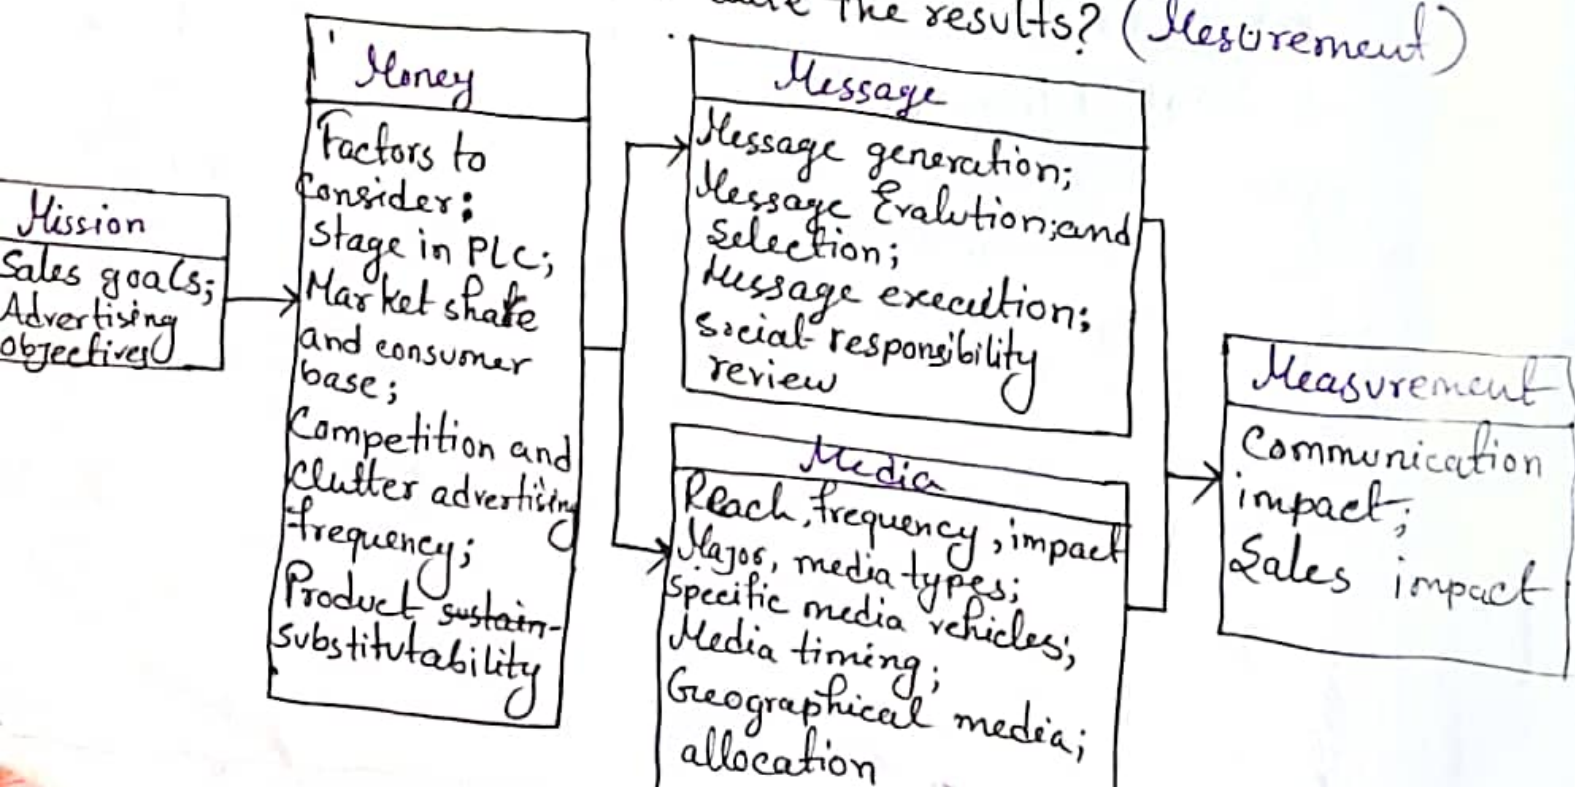 the results? (Mesurement)
Mission
Sales goals;
Advertising
objectives
Money
Factors to
Consider:
Stage in PLC;
Market share
and consumer
base;
Competition and
Clutter advertising
frequency;
Product sustain-
substitutability
Message
Message generation;
Message Evalution;and
Selection;
Message execution;
Social responsibility
review
Media
Reach, frequency, impact
Major, media types;
Specific media vehicles;
Media timing;
Geographical media;
allocation
Measurement
Communication
impact;
Sales impact